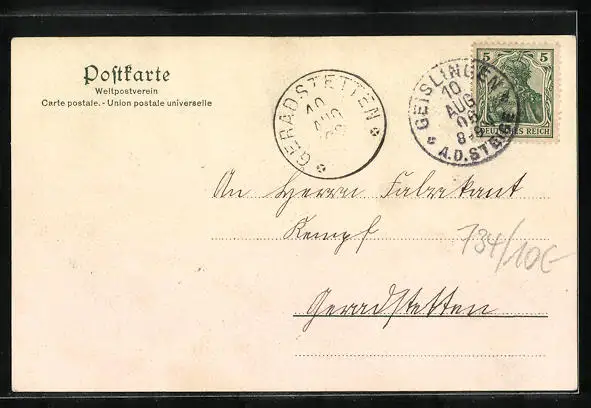 Postkarte
Weltpostverein
Carte postale. - Union postale universelle
GERADSTETTEN
10
AUG
08
GEISLINGEN
10
AUG
08
8-9
A.D. STEIGE
5 5
DEUTSCHES REICH
An Herrn Fabrikant
Kempf
Geradstetten
734/10€